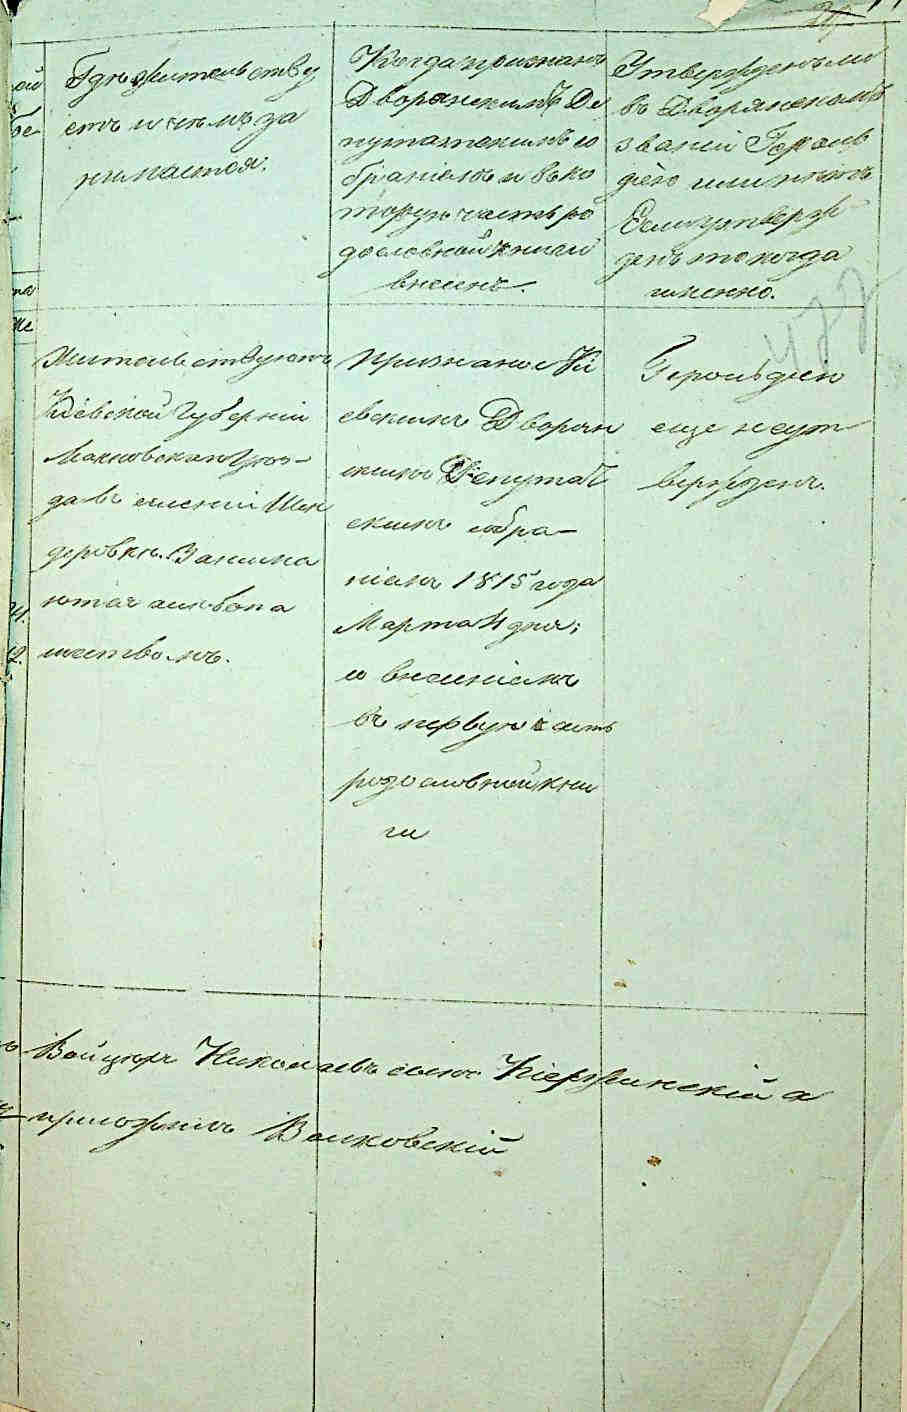 Где жительству
етъ и чѣмъ за
нимается.
Когда признанъ
Дворянскимъ Де
путатскимъ со
браніемъ и въ ко
торую часть ро
дословной книги
внесенъ.
Утвержденъ ли
въ Дворянскомъ
званіи Героль
діею или нѣтъ
Если утверж
денъ то когда
именно.
422
Жительствуютъ
Кіевской Губерніи
Махновскаго Уѣз-
да въ селеніи
деревки. Занима
ются
шествомъ.
Признано Кі
евскимъ Дворян
скимъ Депутат
скимъ собра-
ніемъ 1815 года
Марта 4 дня;
со внесеніемъ
въ первую часть
родословной кни
ги
Герольдіею
еще неут
вержденъ.
Войцѣхъ Николаевъ сынъ а
приложилъ Волковскій